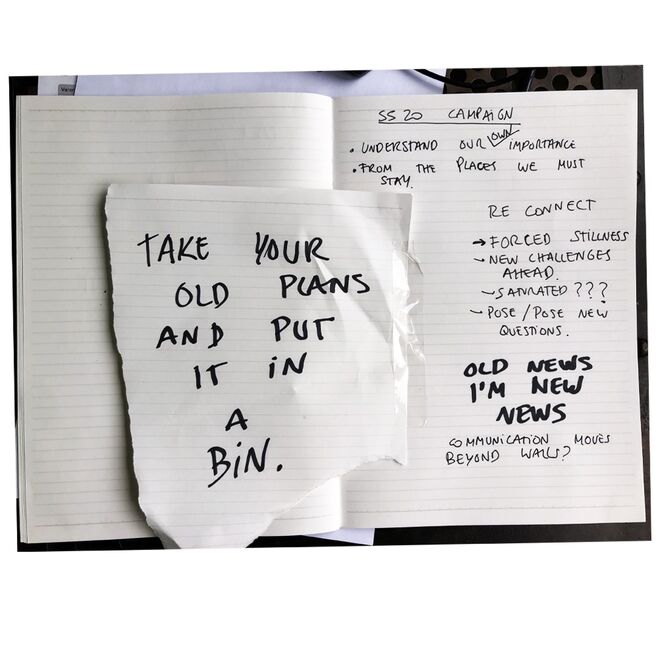 TAKE YOUR
OLD PLANS
AND PUT
IT iN
A
BiN.
SS 20 CAMPAiGN
• UNDERSTAND OUR OWN iMPORTANCE
• FROM THE PLACES WE MUST
STAY.
RE CONNECT
→ FORCED STILLNESS
- NEW CHALLENGES
AHEAD.
- SATURATED ???
- POSE / POSE NEW
QUESTIONS.
OLD NEWS
I'M NEW
NEWS
COMMUNICATION MOVES
BEYOND WALLS?